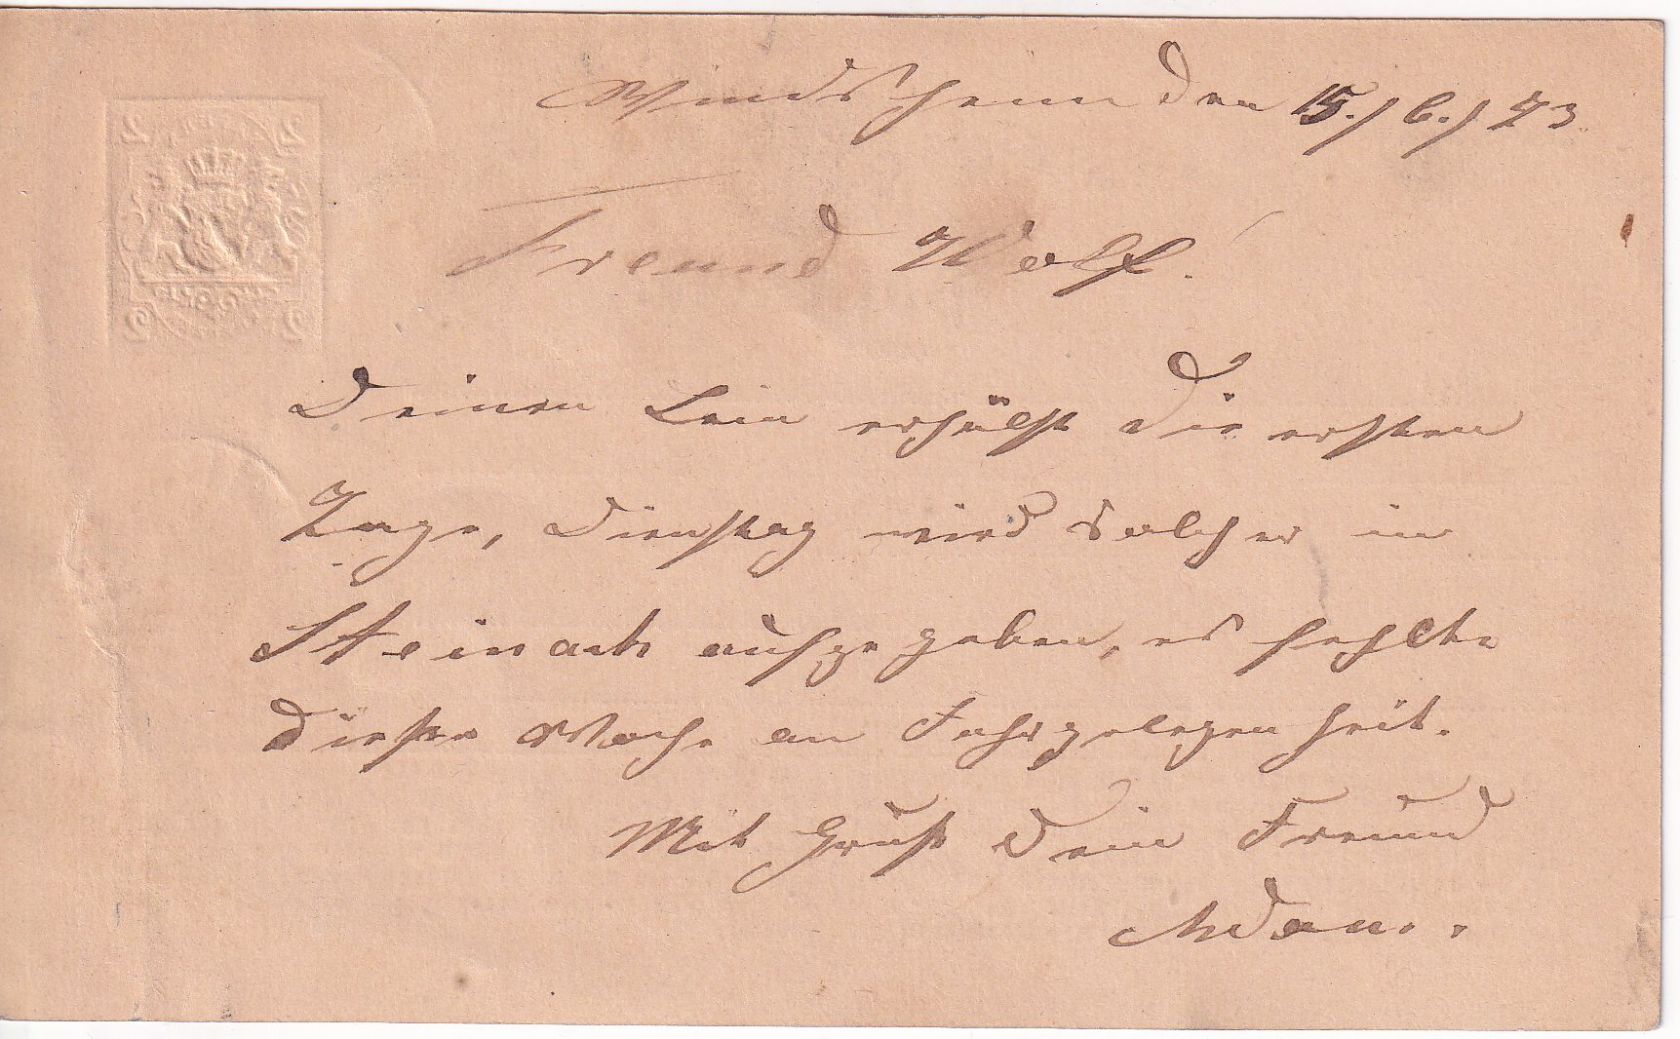 Windsheim den 15./6./73
Freund Wolf!
Deinen Leim erhälst Die ersten
Tage, Dienstag wird solcher in
Steinach aufgegeben, es fehlte
diese Woche an Fahrgelegenheit.
Mit Gruß Dein Freund
Adam.
2 2
2 2